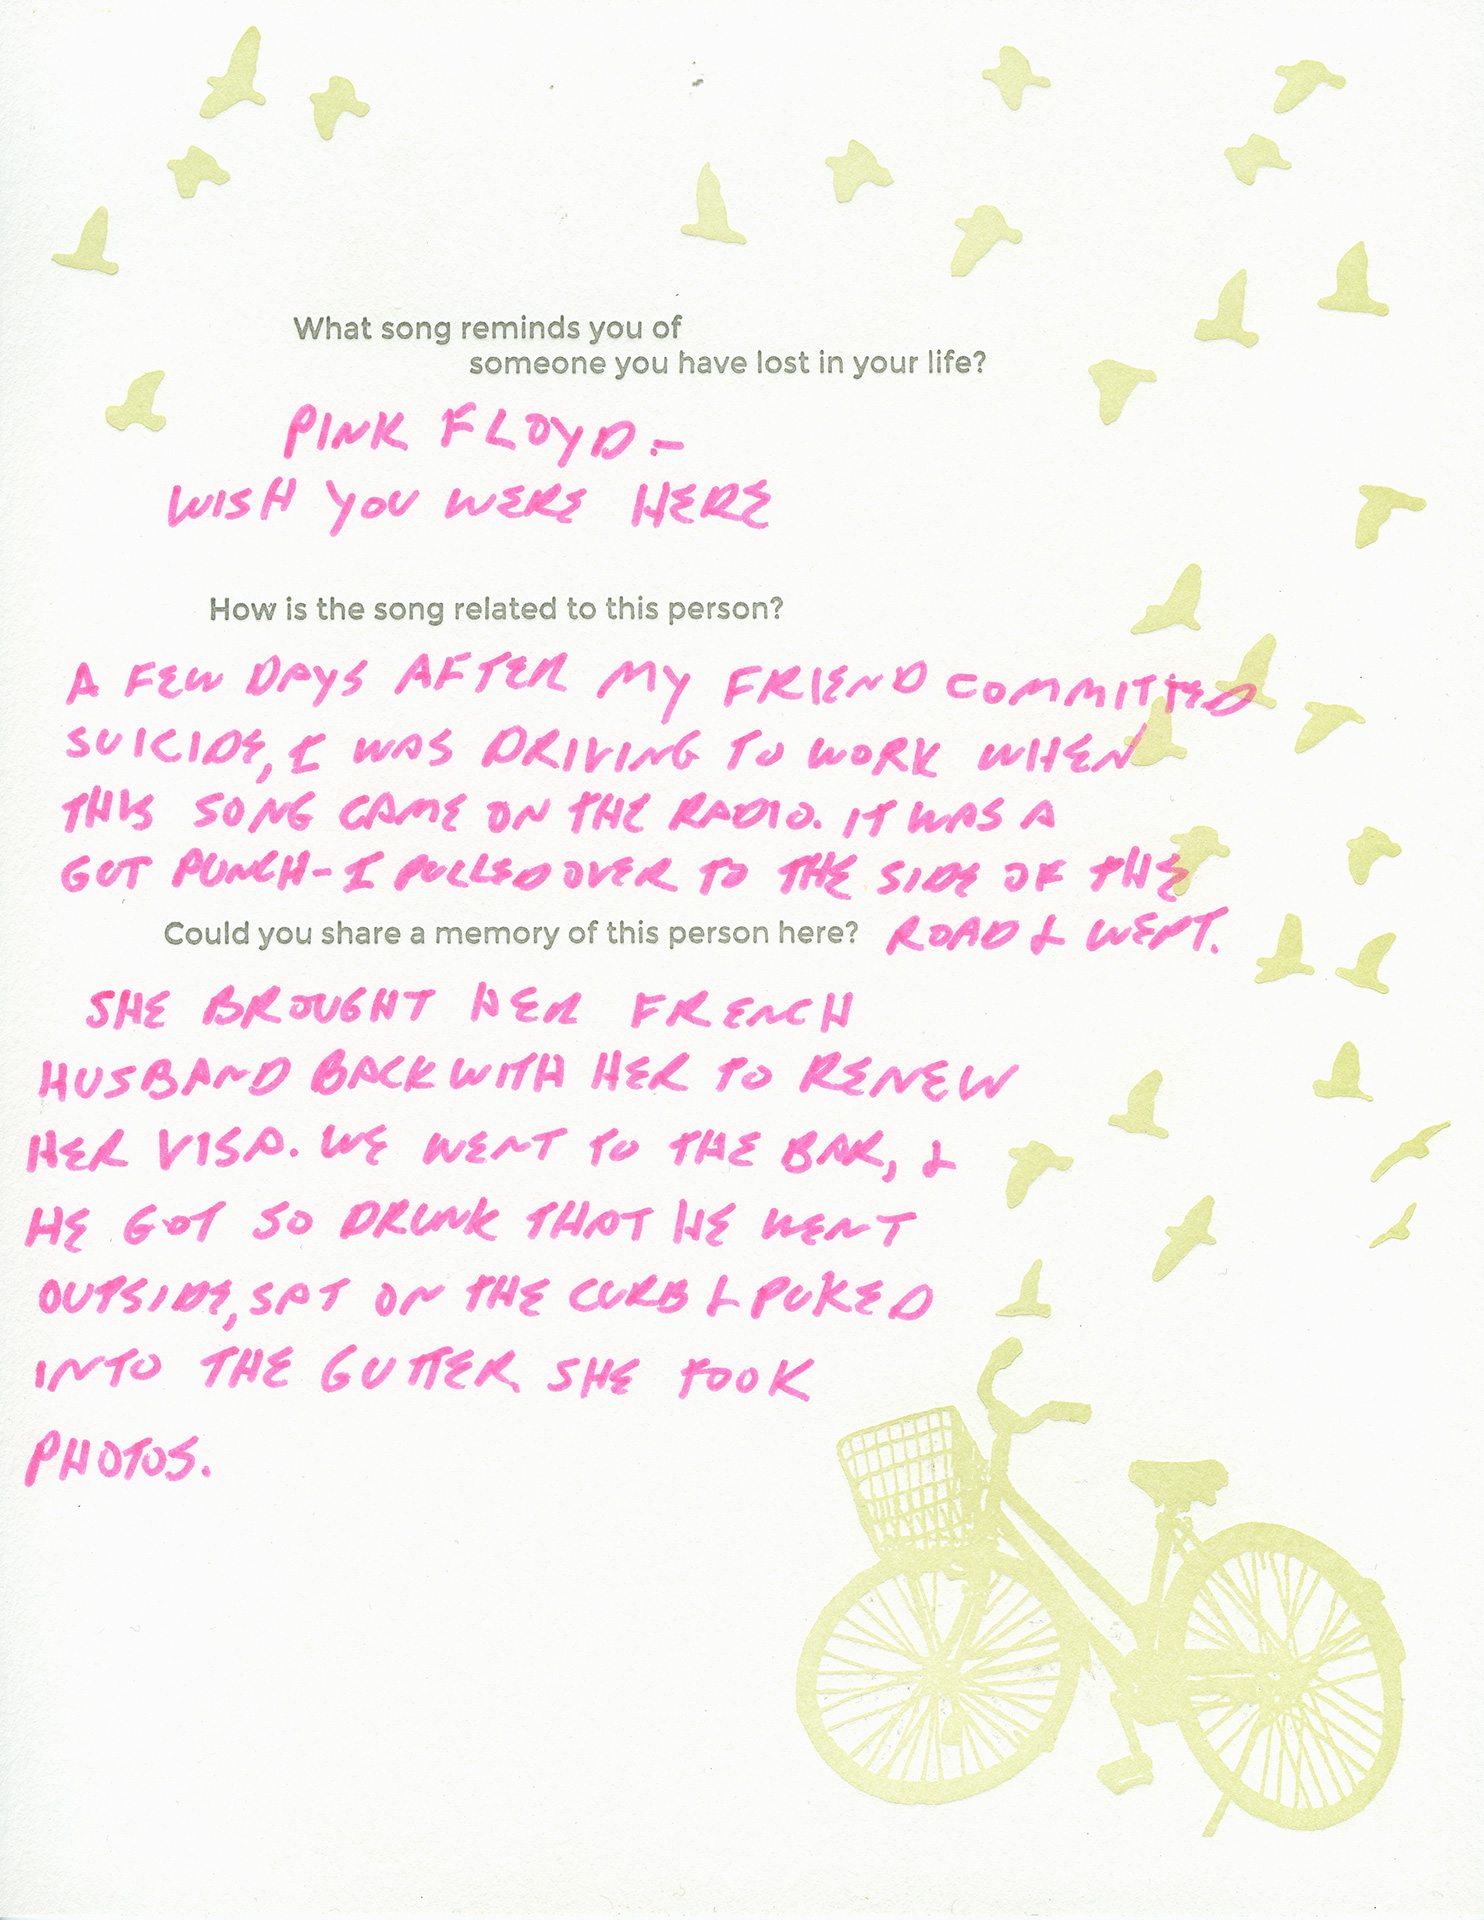 What song reminds you of
someone you have lost in your life?
PINK FLOYD -
WISH YOU WERE HERE
How is the song related to this person?
A FEW DAYS AFTER MY FRIEND COMMITTED
SUICIDE, I WAS DRIVING TO WORK WHEN
THIS SONG CAME ON THE RADIO. IT WAS A
GUT PUNCH - I PULLED OVER TO THE SIDE OF THE
ROAD & WEPT.
Could you share a memory of this person here?
SHE BROUGHT HER FRENCH
HUSBAND BACK WITH HER TO RENEW
HER VISA. WE WENT TO THE BAR, &
HE GOT SO DRUNK THAT HE WENT
OUTSIDE, SAT ON THE CURB & PUKED
INTO THE GUTTER. SHE TOOK
PHOTOS.